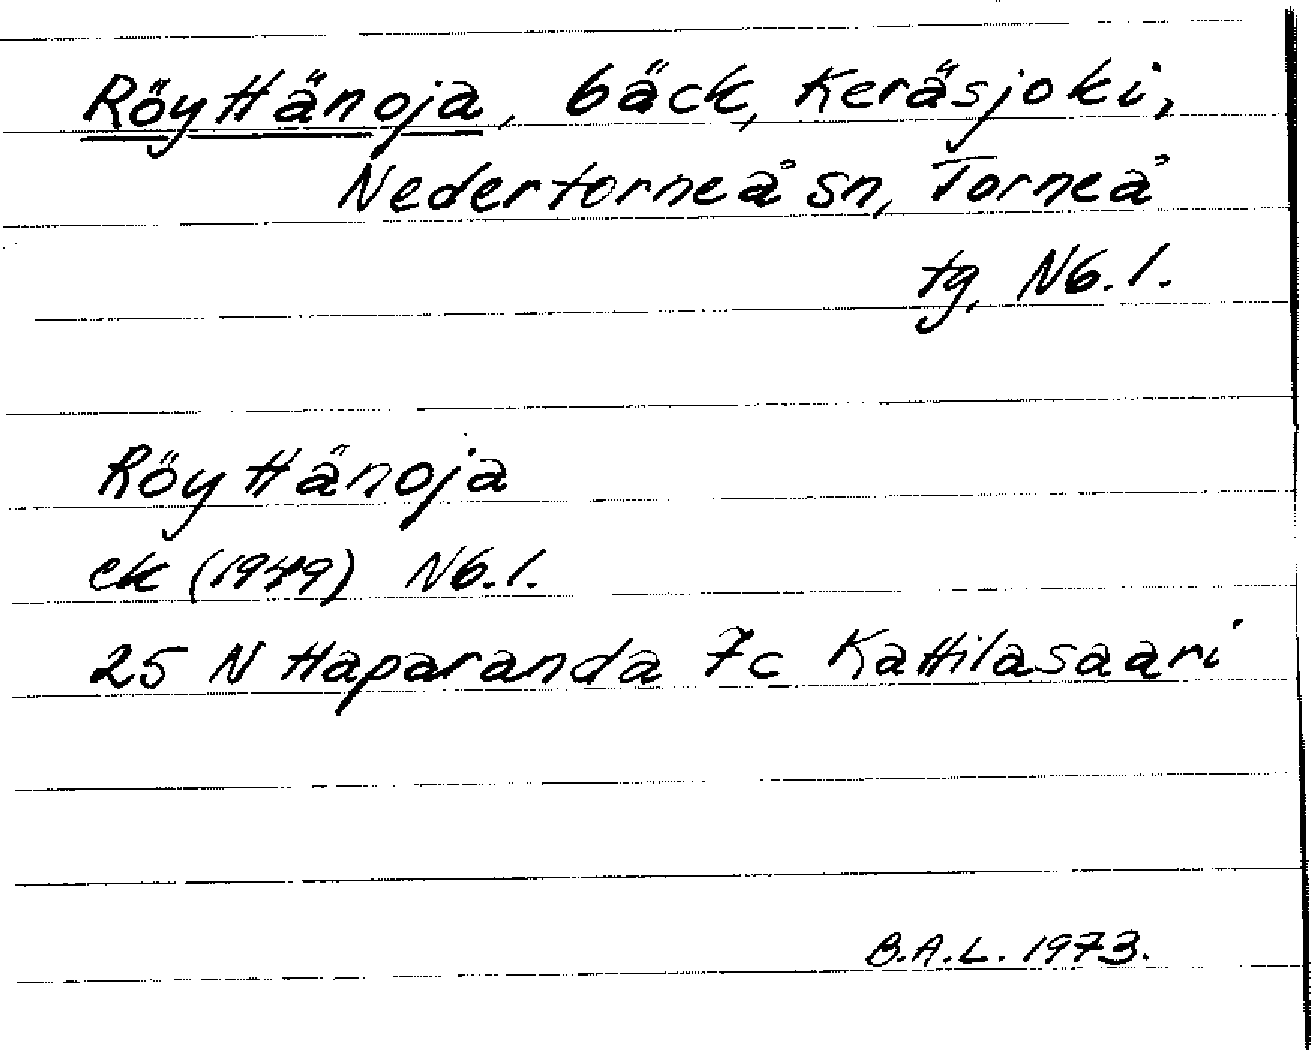 Röyttänoja, bäck, Keräsjoki,
Nedertorneå sn, Torneå
tg, Nb.l.
Röyttänoja
ek (1949) Nb.l.
25 N Haparanda 7c Kattilasaari
B.A.L. 1973.